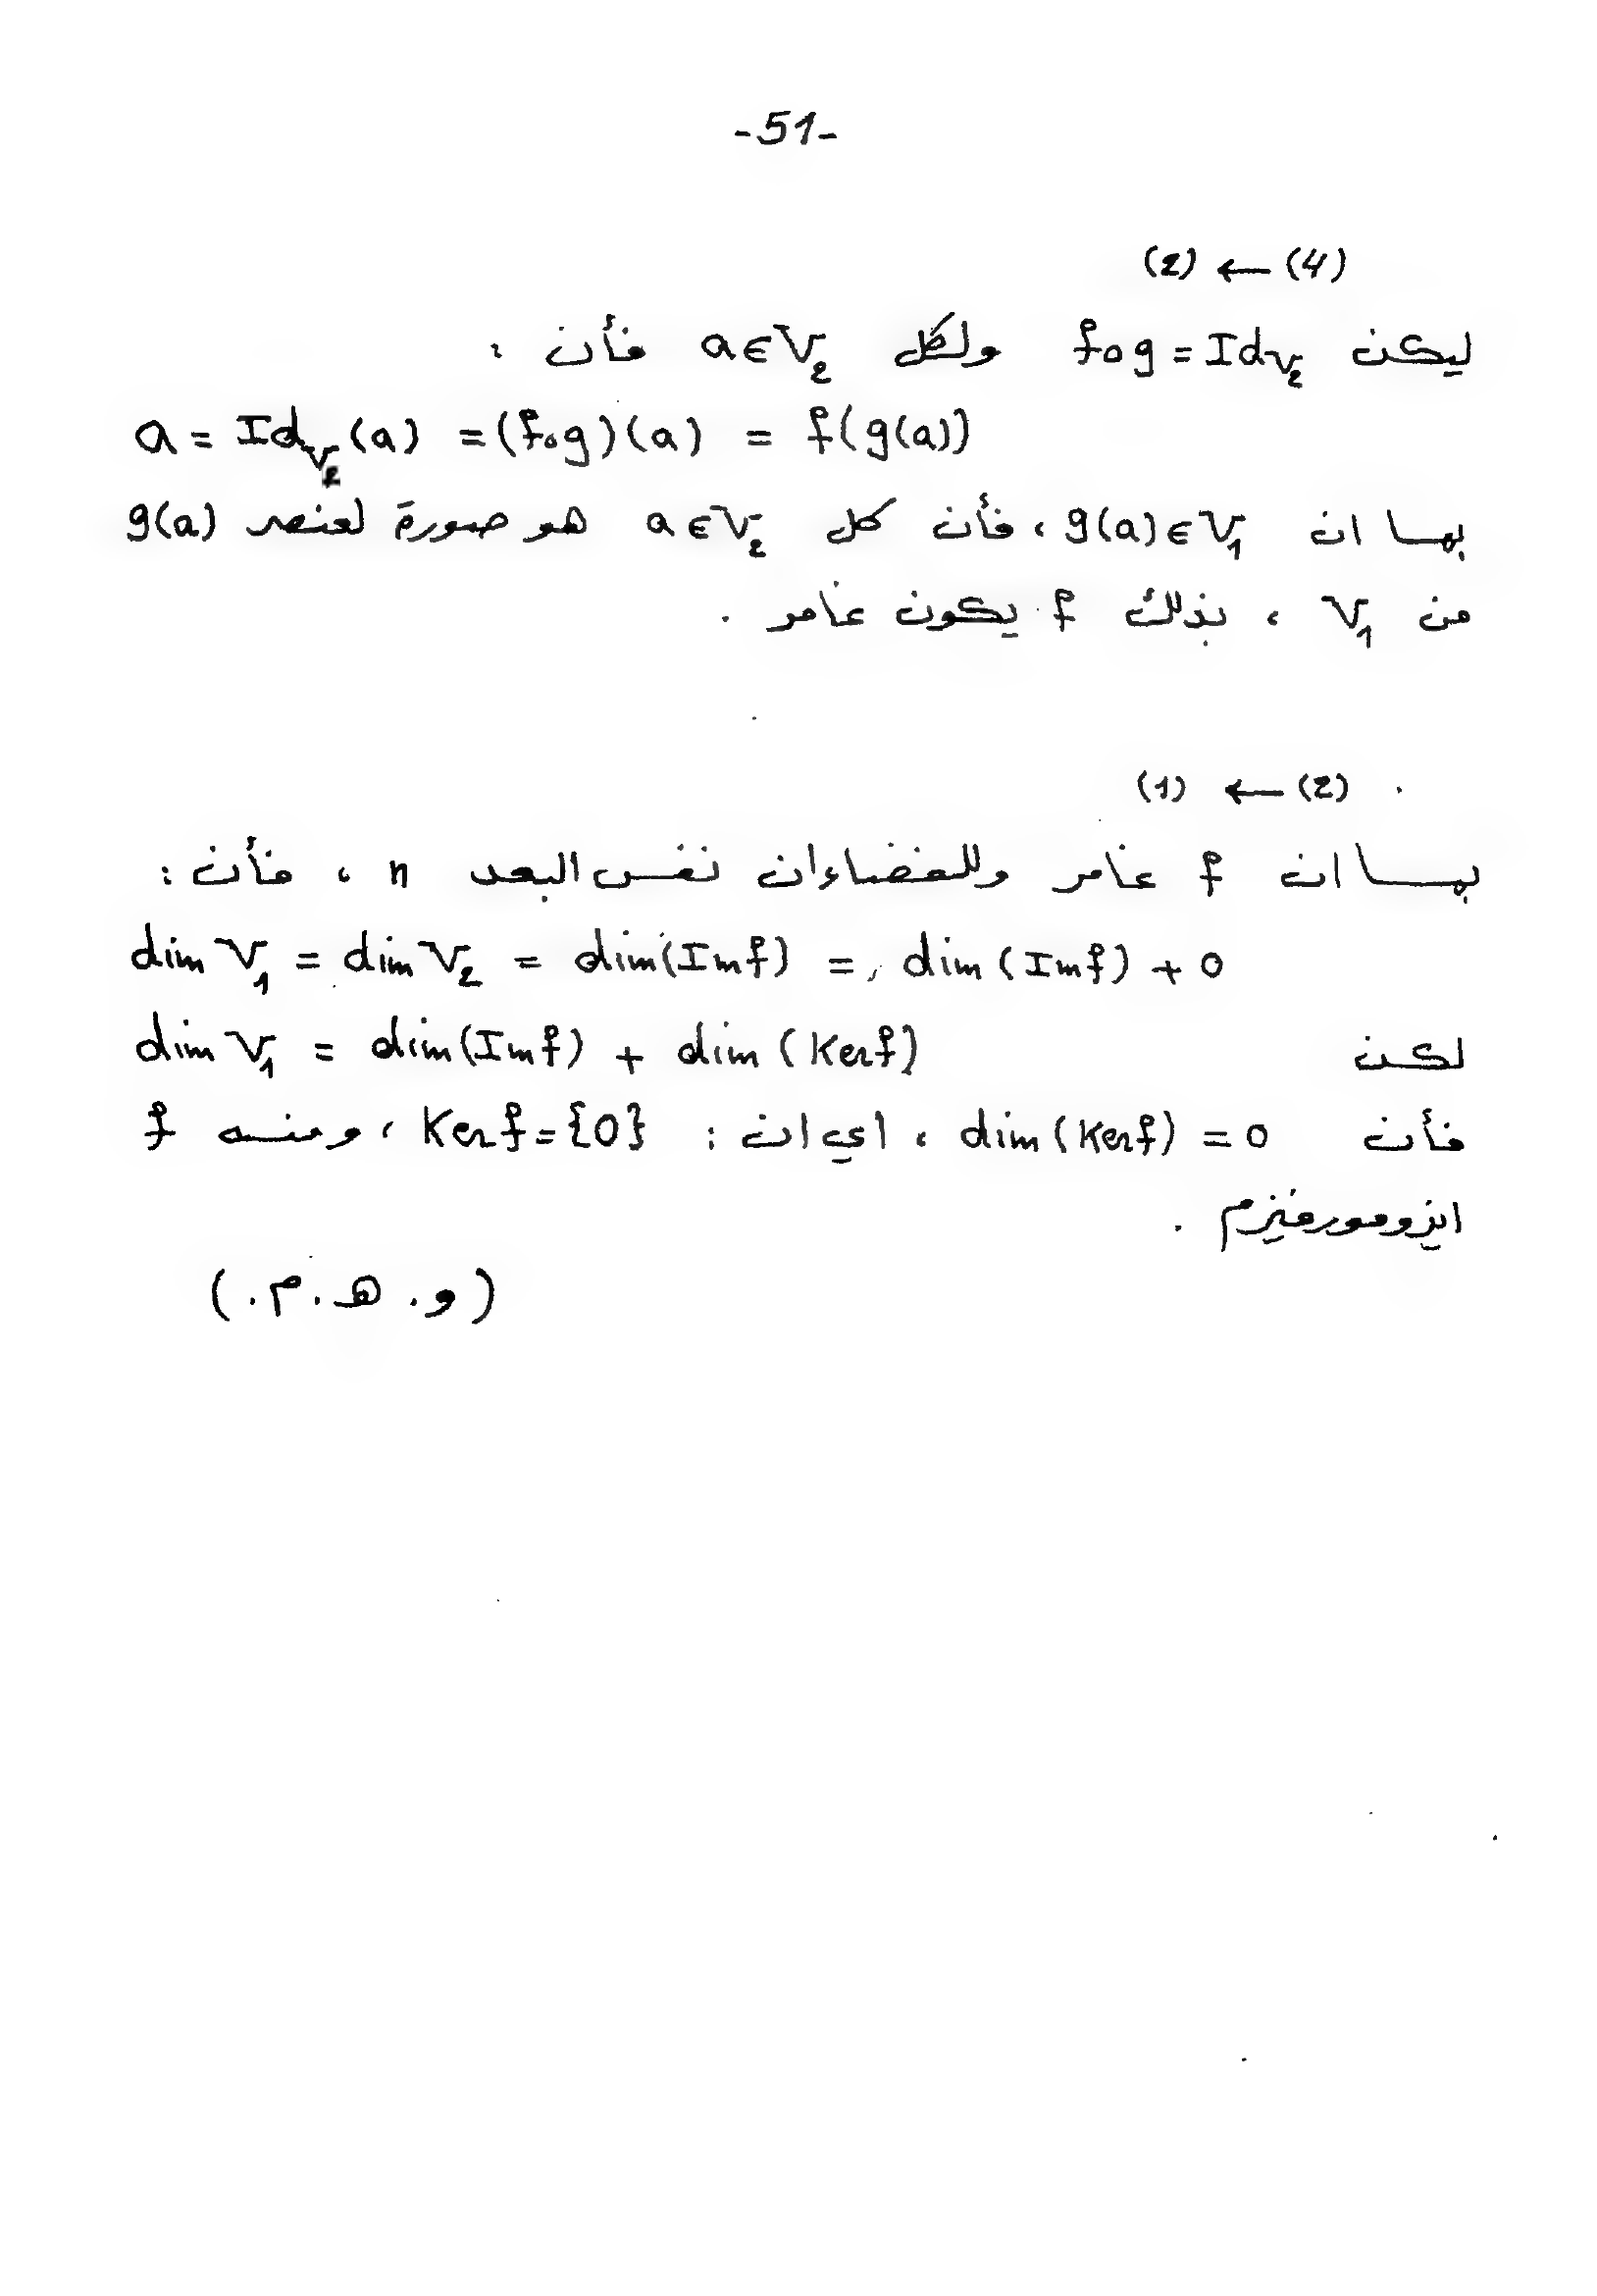 -51-
(4) ← (2)
ليكن f∘g = Id_V₂ ولكل a ∈ V₂ فأن :
a = Id_V₂(a) = (f∘g)(a) = f(g(a))
بما ان g(a) ∈ V₁ ، فأن كل a ∈ V₂ هو صورة لعنصر g(a)
من V₁ ، بذلك f يكون غامر .
(2) ← (1)
بما ان f غامر وللفضاءان نفس البعد n ، فأن :
dim V₁ = dim V₂ = dim(Imf) = dim(Imf) + 0
لكن dim V₁ = dim(Imf) + dim(Kerf)
فأن dim(Kerf) = 0 ، اي ان : Kerf = {0} ، ومنه f
ايزومورفيزم .
(و. هـ. م.)